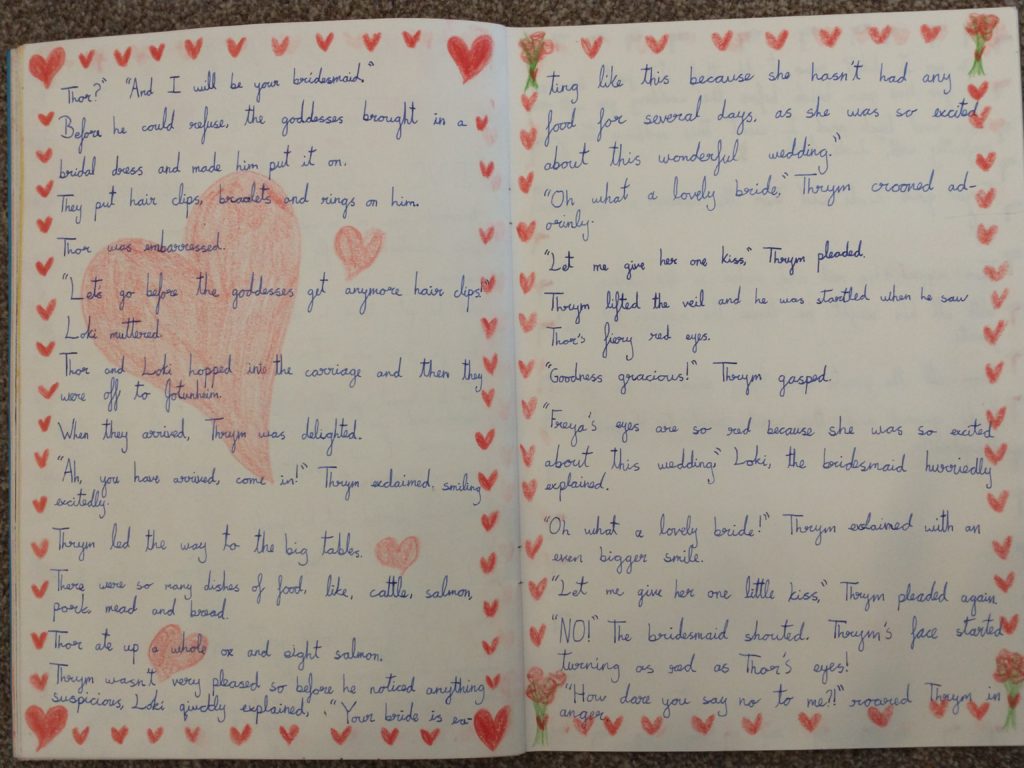 Thor?" "And I will be your bridesmaid."
Before he could refuse, the goddesses brought in a
bridal dress and made him put it on.
They put hair clips, bracelets and rings on him.
Thor was embarressed.
"Let's go before the goddesses get anymore hair clips!"
Loki muttered.
Thor and Loki hopped into the carriage and then they
were off to Jotunheim.
When they arrived, Thrym was delighted.
"Ah, you have arrived, come in!" Thrym exclaimed, smiling
excitedly.
Thrym led the way to the big tables.
There were so many dishes of food, like, cattle, salmon,
pork, mead and bread.
Thor ate up a whole ox and eight salmon.
Thrym wasn't very pleased so before he noticed anything
suspicious, Loki quickly explained, "Your bride is ea-
ting like this because she hasn't had any
food for several days, as she was so excited
about this wonderful wedding."
"Oh what a lovely bride," Thrym crooned ad-
orinly.
"Let me give her one kiss," Thrym pleaded.
Thrym lifted the veil and he was startled when he saw
Thor's fiery red eyes.
"Goodness gracious!" Thrym gasped.
"Freya's eyes are so red because she was so excited
about this wedding," Loki, the bridesmaid hurriedly
explained.
"Oh what a lovely bride!" Thrym exlaimed with an
even bigger smile.
"Let me give her one little kiss," Thrym pleaded again.
"NO!" The bridesmaid shouted. Thrym's face started
turning as red as Thor's eyes!
"How dare you say no to me?!" roared Thrym in
anger.